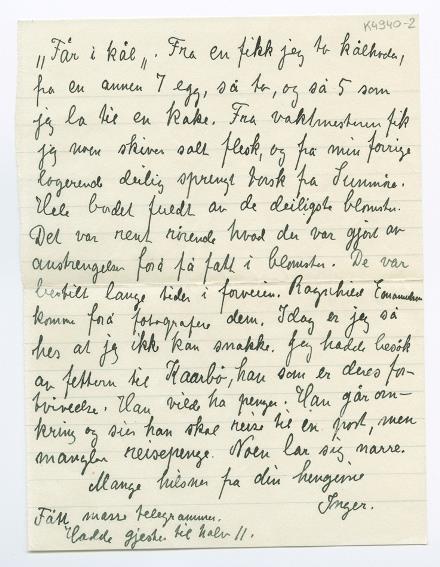 K4940-2
„Får i kål„. Fra en fikk jeg to kålhoder,
fra en annen 7 egg, så to, og så 5 som
jeg la til en kake. Fra vaktmesteren fik
jeg noen skiver salt flesk, og fra min forrige
logerende deilig sprengt torsk fra Sunnmøre.
Hele bordet fuldt av de deiligste blomster.
Det var rent rørende hvad der var gjort av
anstrengelser forå få fatt i blomster. De var
bestilt lange tider i forveien. Ragnhild
komme forå fotografere dem. Idag er jeg så
hes at jeg ikk kan snakke. Jeg hadde besøk
av fetteren til Kaarbö, han som er deres for-
tvivelse. Han vilde ha penger. Han går om-
kring og sier han skal reise til en post, men
mangler reisepenge. Noen lar sig narre.
Mange hilsner fra din hengivne
Inger.
Fått masse telegrammer.
Hadde gjester til halv 11.